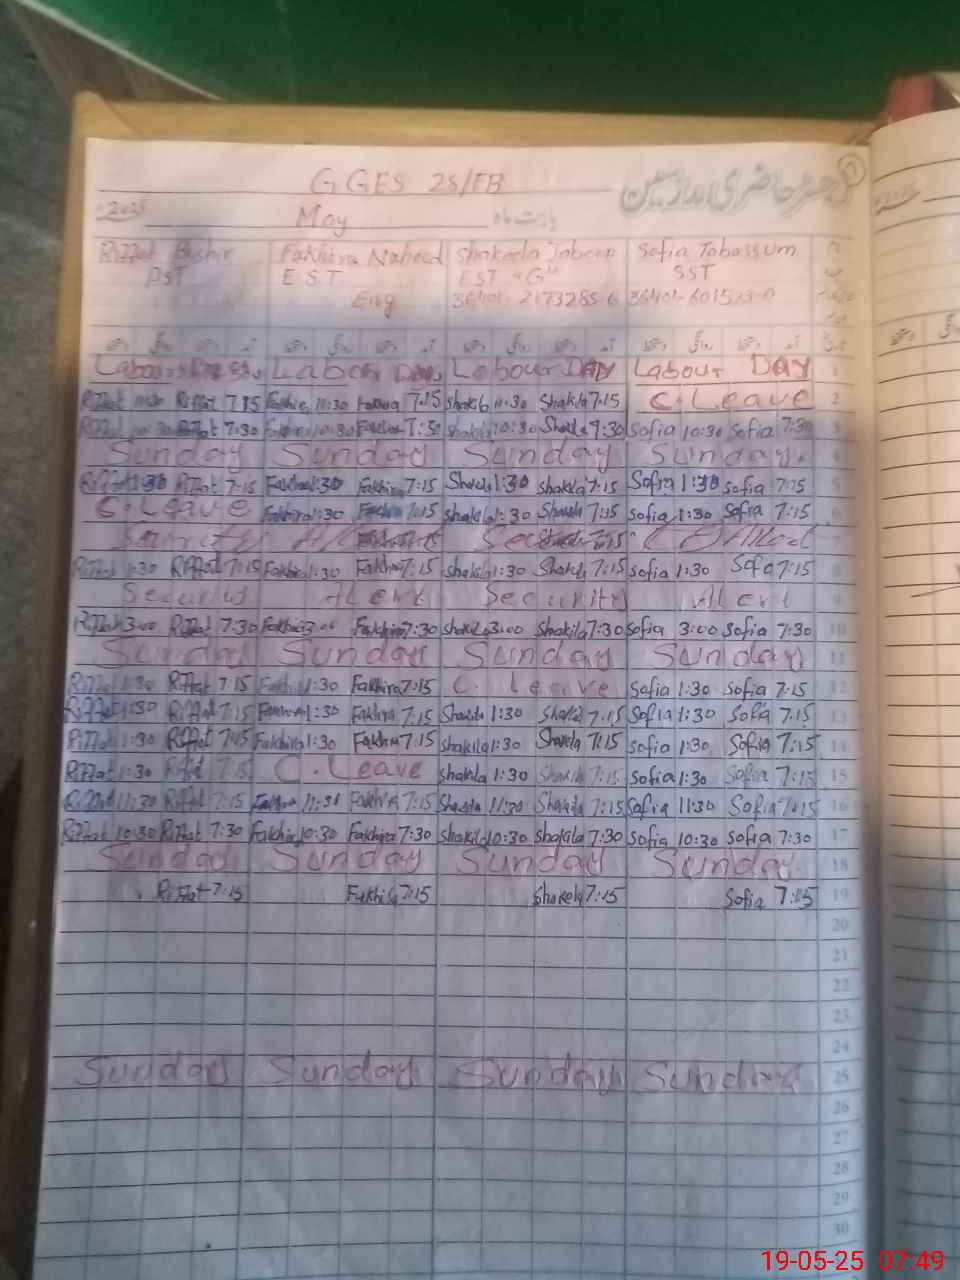 GGES 28/EB رجسٹر حاضری مدرسین
2025 May بابت ماہ
Riffat Bashir Fakhira Naheed Shakeela Jabeen Sofia Tabassum
PST E.S.T EST "G" SST
Eng 36401-2173285-6
Labour Day Labour DAY Labour DAY 1
Riffat 7:15 11:30 Fakhira 7:15 11:30 Shakila 7:15 C. Leave 2
7:30 10:30 10:30 Sofia 10:30 Sofia 7:30 3
Sunday Sunday Sunday Sunday 4
1:30 Riffat 7:15 1:30 Fakhira 7:15 1:30 Shakila 7:15 Sofia 1:30 Sofia 7:15 5
C. Leave Fakhira 1:30 7:15 Shakila 1:30 7:15 Sofia 1:30 Sofia 7:15 6
7
Riffat 1:30 Riffat 7:15 Fakhira 1:30 Fakhira 7:15 Shakila 1:30 Shakila 7:15 Sofia 1:30 Sofia 7:15 8
Security Alert Security Alert 9
Riffat 3:00 Riffat 7:30 Fakhira 3:00 Fakhira 7:30 Shakila 3:00 Shakila 7:30 Sofia 3:00 Sofia 7:30 10
Sunday Sunday Sunday Sunday 11
Riffat 1:30 Riffat 7:15 Fakhira 1:30 Fakhira 7:15 C. Leave Sofia 1:30 Sofia 7:15 12
Riffat 1:30 Riffat 7:15 Fakhira 1:30 Fakhira 7:15 Shakila 1:30 Shakila 7:15 Sofia 1:30 Sofia 7:15 13
Riffat 1:30 Riffat 7:15 Fakhira 1:30 Fakhira 7:15 Shakila 1:30 Shakila 7:15 Sofia 1:30 Sofia 7:15 14
Riffat 1:30 Riffat 7:15 C. Leave Shakila 1:30 Shakila 7:15 Sofia 1:30 Sofia 7:15 15
Riffat 11:30 Riffat 7:15 Fakhira 11:30 Fakhira 7:15 Shakila 11:30 Shakila 7:15 Sofia 11:30 Sofia 7:15 16
Riffat 10:30 Riffat 7:30 Fakhira 10:30 Fakhira 7:30 Shakila 10:30 Shakila 7:30 Sofia 10:30 Sofia 7:30 17
Sunday Sunday Sunday Sunday 18
Riffat 7:15 Fakhira 7:15 Shakela 7:15 Sofia 7:15 19
20
21
22
23
24
Sunday Sunday Sunday Sunday 25
26
27
28
29
30
19-05-25 07:49